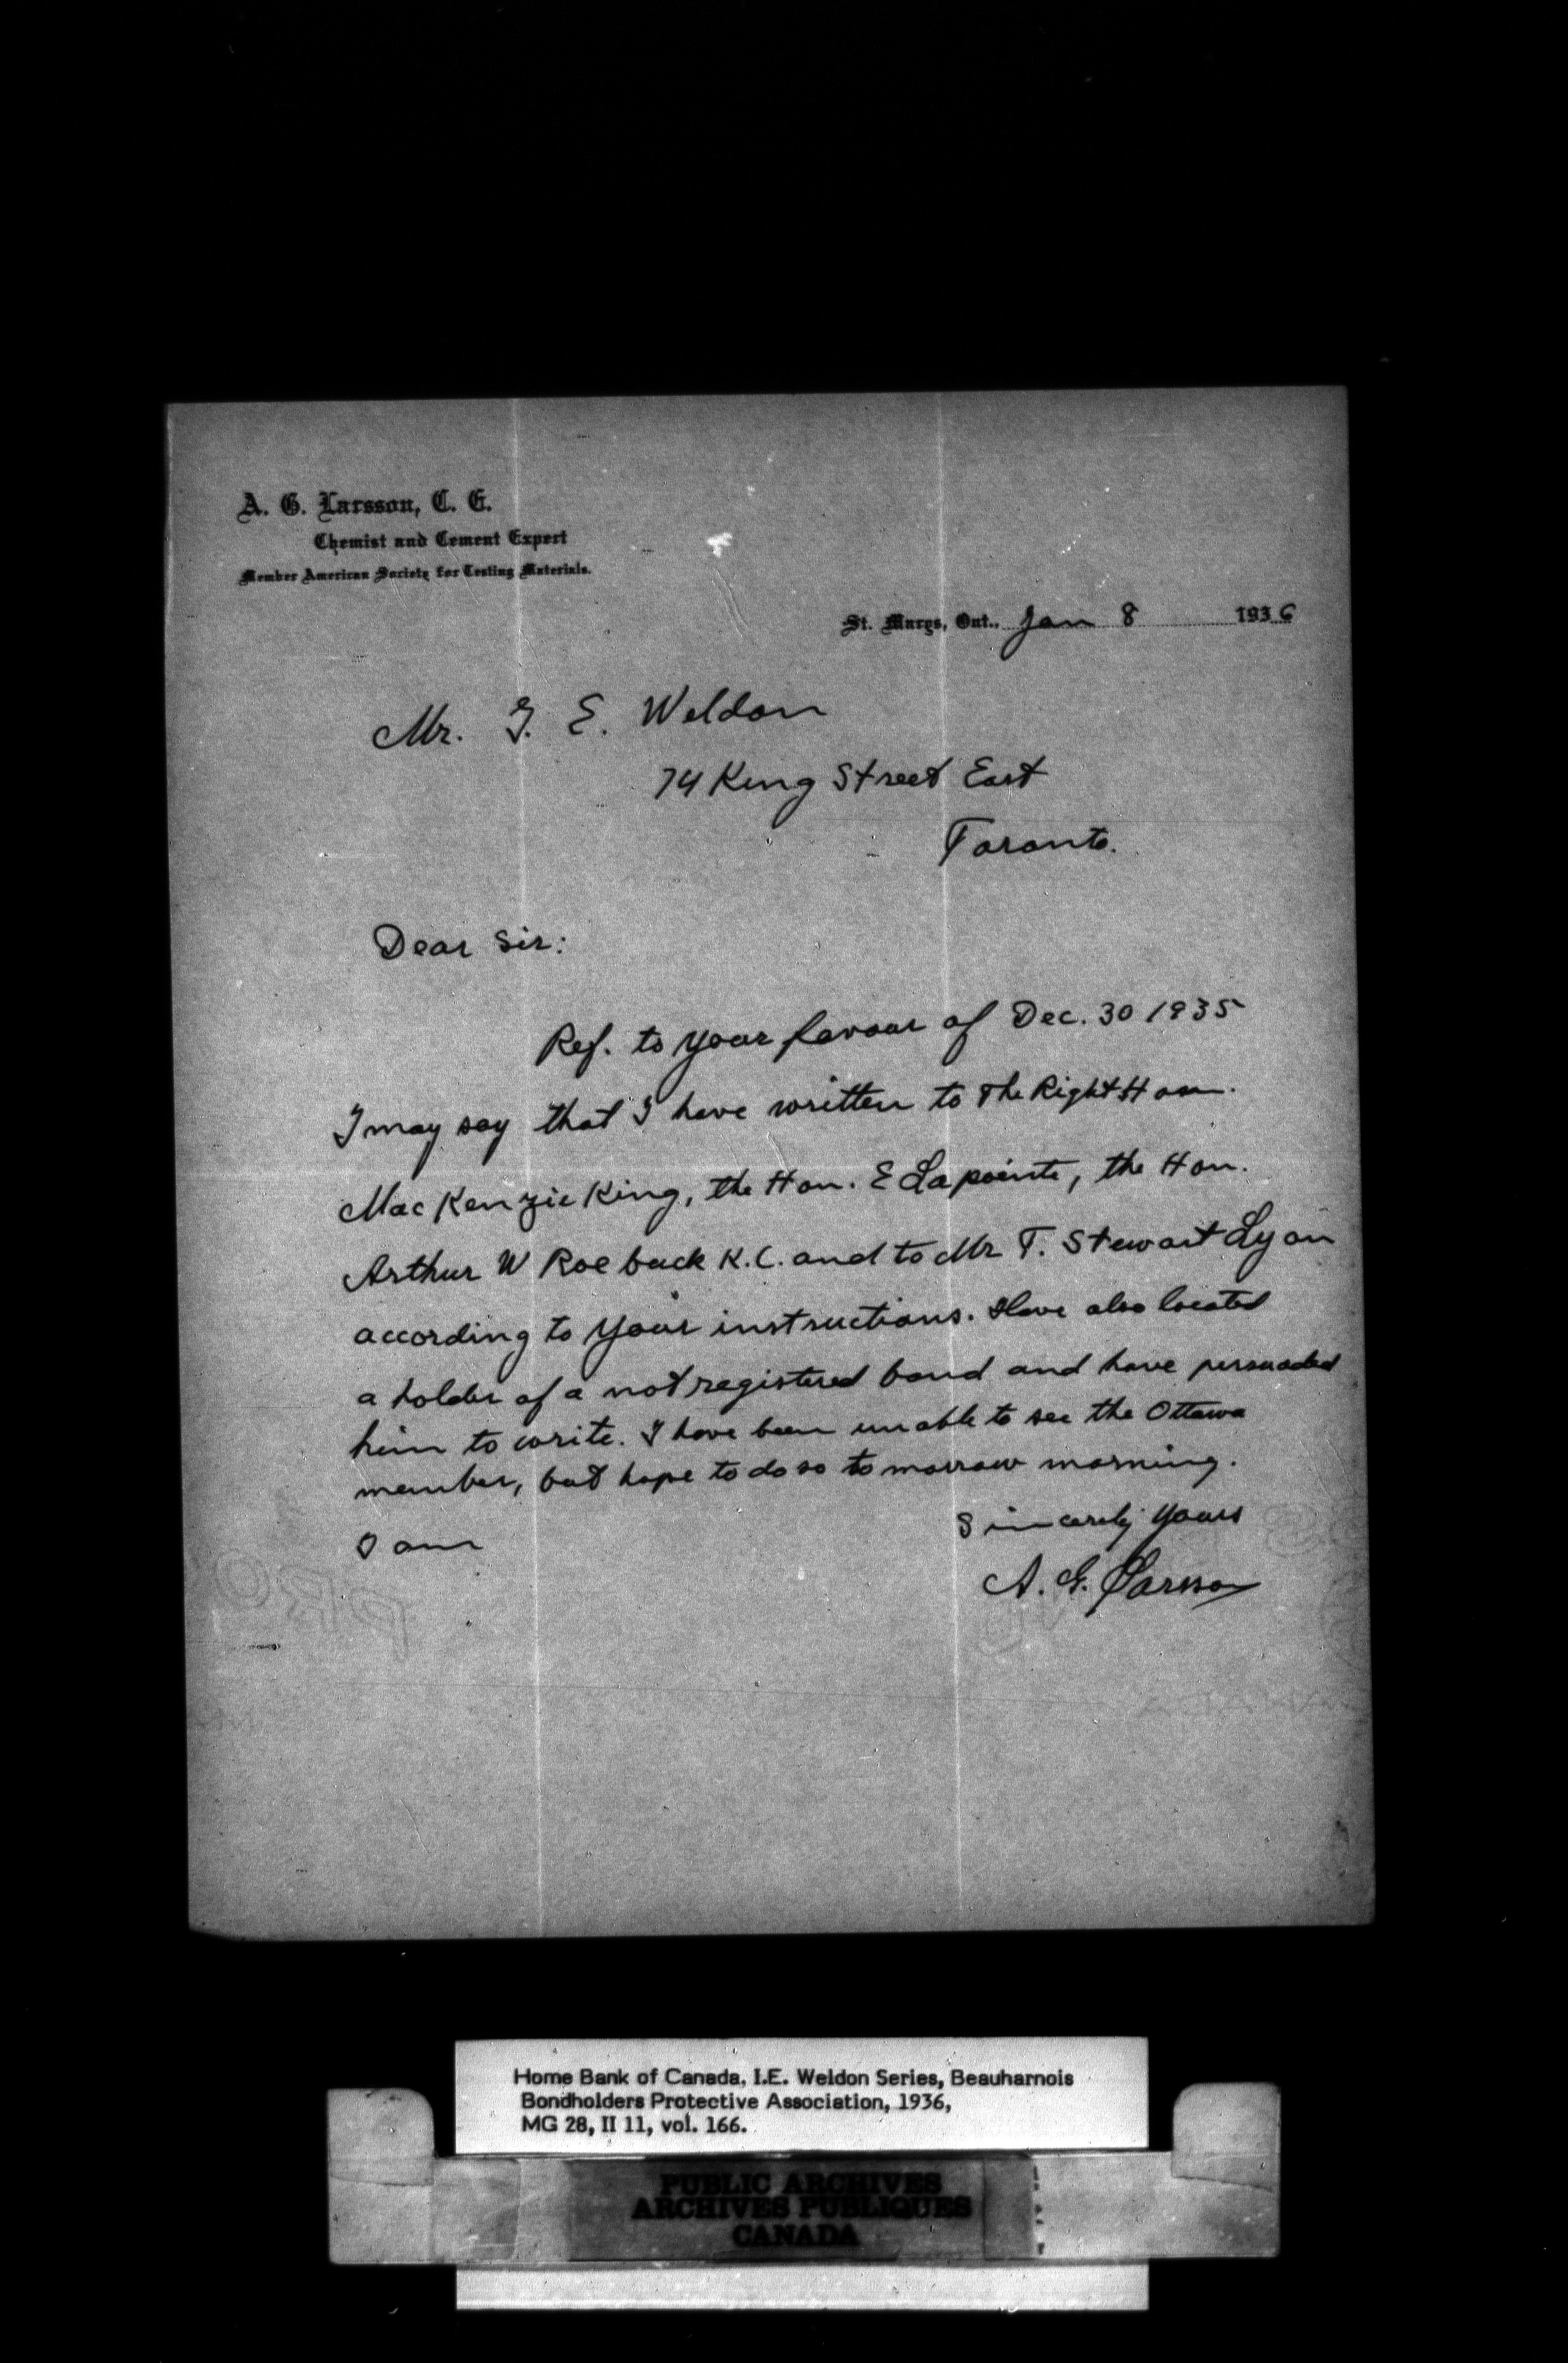 A. G. Larsson, C. E.
Chemist and Cement Expert
Member American Society for Testing Materials.
St. Marys, Ont., Jan 8 1936
Mr. I. E. Weldon
74 King Street East
Toronto.
Dear Sir:
Ref. to your favour of Dec. 30 1935
I may say that I have written to The Right Hon.
MacKenzie King, the Hon. E Lapointe, the Hon.
Arthur W Roebuck K.C. and to Mr T. Stewart Lyon
according to your instructions. Have also located
a holder of a not registered bond and have persuaded
him to write. I have been unable to see the Ottawa
member, but hope to do so tomorrow morning.
I am
Sincerely yours
A. G. Larsson
Home Bank of Canada, I.E. Weldon Series, Beauharnois
Bondholders Protective Association, 1936,
MG 28, II 11, vol. 166.
PUBLIC ARCHIVES
ARCHIVES PUBLIQUES
CANADA